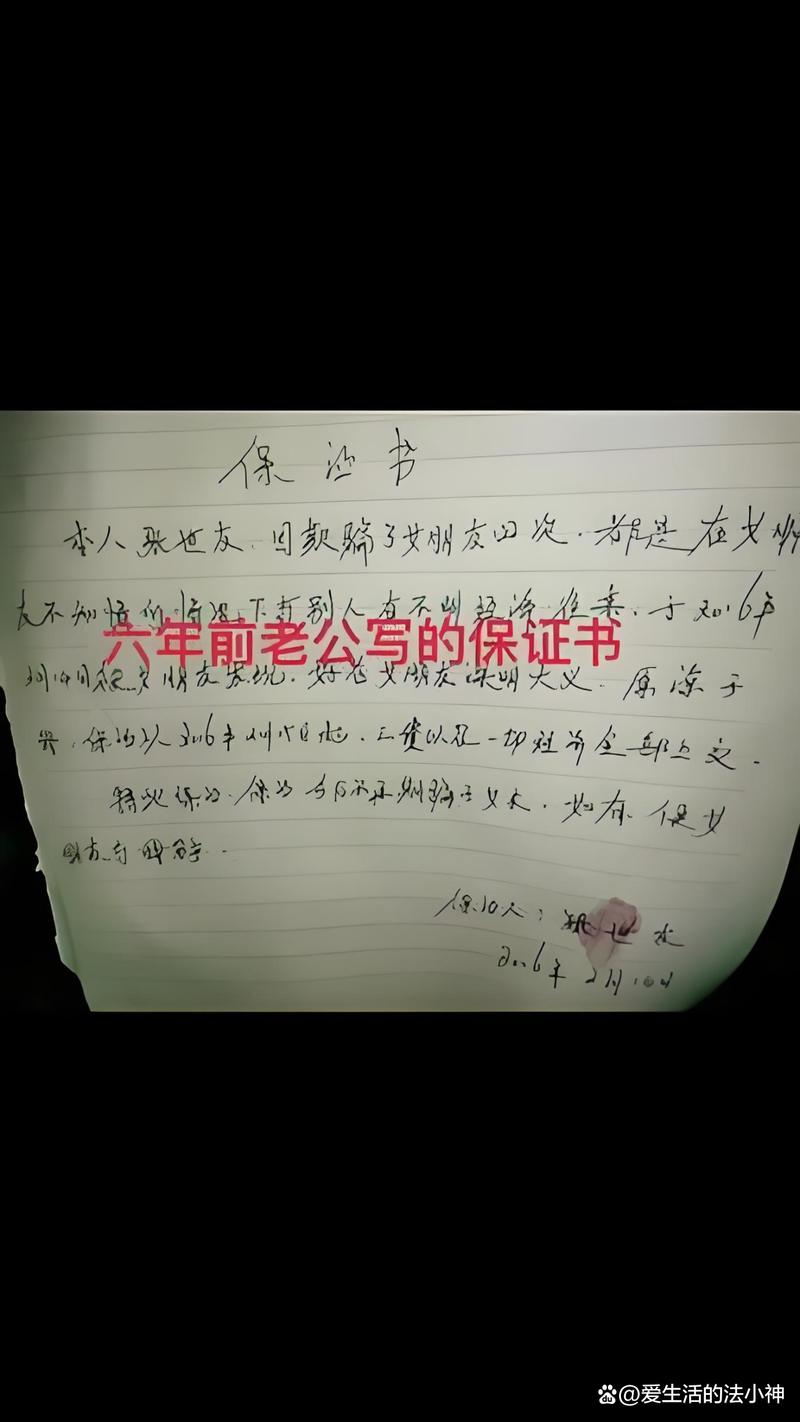 保证书
本人张世友,因欺骗了女朋友四次.都是在女朋
友不知情的情况下与别人有不明经济往来,于2016年
六年前老公写的保证书
月 日被女朋友发现,好在女朋友深明大义.原谅于
我,保证从2016年 月 日起,工资以及一切 全部上交.
特此保证.保证今后不再欺骗于女友,如有 使女
朋友
保证人:张世友
2016年2月10日
@爱生活的法小神